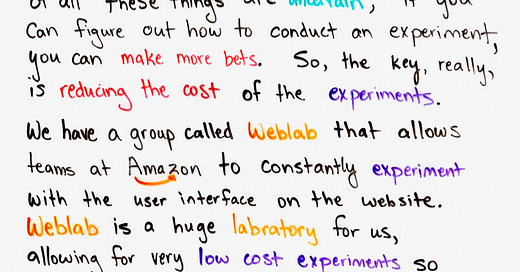 of all these things are uncertain, if you
Can figure out how to conduct an experiment,
you can make more bets. So, the key, really,
is reducing the cost of the experiments.
We have a group called Weblab that allows
teams at Amazon to constantly experiment
with the user interface on the website.
Weblab is a huge labratory for us,
allowing for very low cost experiments so